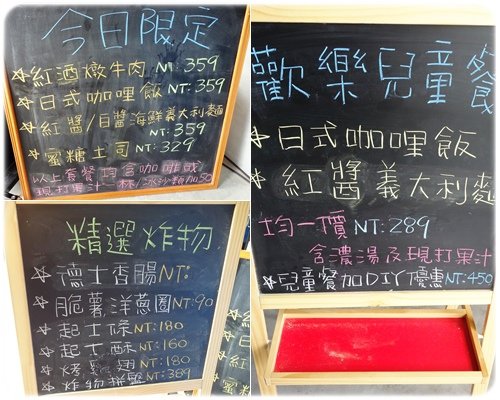 今日限定
☆紅酒燉牛肉 NT:359
☆日式咖哩飯 NT:359
☆紅醬/白醬海鮮義大利麵
NT:359
☆蜜糖土司 NT:329
以上套餐均含咖啡或
現打果汁一杯/冰沙類加50
歡樂兒童餐
☆日式咖哩飯
☆紅醬義大利麵
均一價 NT:289
含濃湯及現打果汁
☆兒童餐加DIY優惠NT:450
精選炸物
☆德士香腸NT:
☆脆薯洋蔥圈NT:90
☆起士條NT:180
☆起士酥NT:160
☆烤雞翅NT:180
☆炸物拼盤NT:389